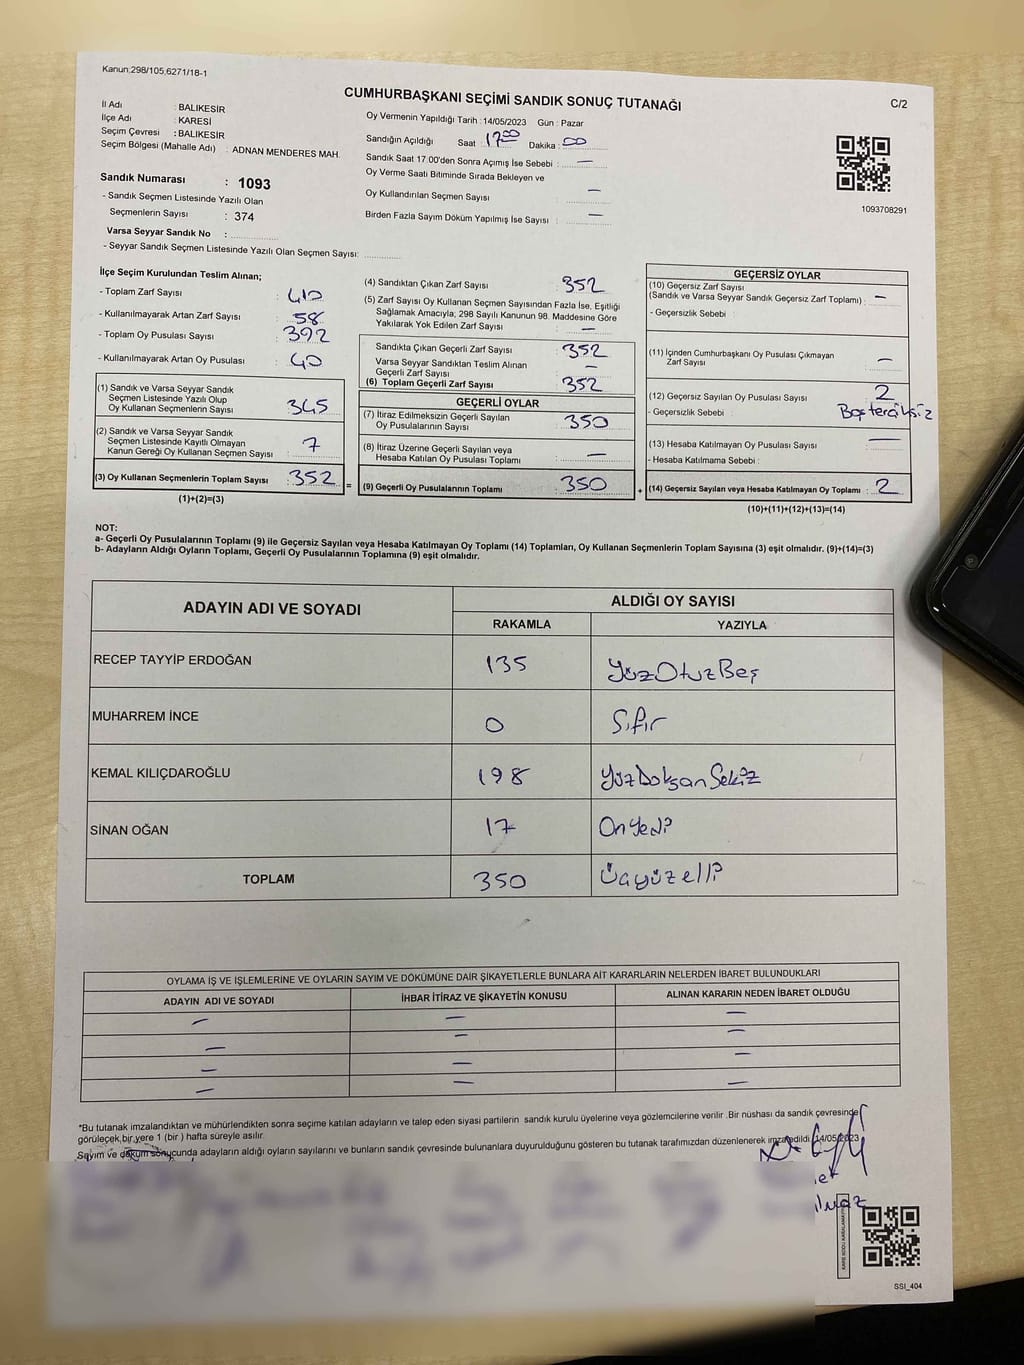 Kanun;298/105,6271/18-1
CUMHURBAŞKANI SEÇİMİ SANDIK SONUÇ TUTANAĞI
C/2
İl Adı : BALIKESİR
İlçe Adı : KARESİ
Seçim Çevresi : BALIKESİR
Seçim Bölgesi (Mahalle Adı) : ADNAN MENDERES MAH.
Sandık Numarası : 1093
- Sandık Seçmen Listesinde Yazılı Olan
Seçmenlerin Sayısı : 374
Varsa Seyyar Sandık No :
- Seyyar Sandık Seçmen Listesinde Yazılı Olan Seçmen Sayısı:
Oy Vermenin Yapıldığı Tarih : 14/05/2023 Gün : Pazar
Sandığın Açıldığı Saat 17:00 Dakika : 00
Sandık Saat 17.00'den Sonra Açımış İse Sebebi : —
Oy Verme Saati Bitiminde Sırada Bekleyen ve
Oy Kullandırılan Seçmen Sayısı : —
Birden Fazla Sayım Döküm Yapılmış İse Sayısı : —
1093708291
İlçe Seçim Kurulundan Teslim Alınan;
- Toplam Zarf Sayısı : 410
- Kullanılmayarak Artan Zarf Sayısı : 58
- Toplam Oy Pusulası Sayısı : 392
- Kullanılmayarak Artan Oy Pusulası : 40
(1) Sandık ve Varsa Seyyar Sandık
Seçmen Listesinde Yazılı Olup
Oy Kullanan Seçmenlerin Sayısı : 345
(2) Sandık ve Varsa Seyyar Sandık
Seçmen Listesinde Kayıtlı Olmayan
Kanun Gereği Oy Kullanan Seçmen Sayısı : 7
(3) Oy Kullanan Seçmenlerin Toplam Sayısı : 352
(1)+(2)=(3)
(4) Sandıktan Çıkan Zarf Sayısı : 352
(5) Zarf Sayısı Oy Kullanan Seçmen Sayısından Fazla İse, Eşitliği
Sağlamak Amacıyla; 298 Sayılı Kanunun 98. Maddesine Göre
Yakılarak Yok Edilen Zarf Sayısı : —
Sandıkta Çıkan Geçerli Zarf Sayısı : 352
Varsa Seyyar Sandıktan Teslim Alınan
Geçerli Zarf Sayısı : —
(6) Toplam Geçerli Zarf Sayısı : 352
GEÇERLİ OYLAR
(7) İtiraz Edilmeksizin Geçerli Sayılan
Oy Pusulalarının Sayısı : 350
(8) İtiraz Üzerine Geçerli Sayılan veya
Hesaba Katılan Oy Pusulası Toplamı : —
= (9) Geçerli Oy Pusulalarının Toplamı : 350
GEÇERSİZ OYLAR
(10) Geçersiz Zarf Sayısı
(Sandık ve Varsa Seyyar Sandık Geçersiz Zarf Toplamı) : —
- Geçersizlik Sebebi :
(11) İçinden Cumhurbaşkanı Oy Pusulası Çıkmayan
Zarf Sayısı : —
(12) Geçersiz Sayılan Oy Pusulası Sayısı : 2
- Geçersizlik Sebebi :
(13) Hesaba Katılmayan Oy Pusulası Sayısı : —
- Hesaba Katılmama Sebebi :
+ (14) Geçersiz Sayılan veya Hesaba Katılmayan Oy Toplamı : 2
(10)+(11)+(12)+(13)=(14)
NOT:
a- Geçerli Oy Pusulalarının Toplamı (9) ile Geçersiz Sayılan veya Hesaba Katılmayan Oy Toplamı (14) Toplamları, Oy Kullanan Seçmenlerin Toplam Sayısına (3) eşit olmalıdır. (9)+(14)=(3)
b- Adayların Aldığı Oyların Toplamı, Geçerli Oy Pusulalarının Toplamına (9) eşit olmalıdır.
ADAYIN ADI VE SOYADI
ALDIĞI OY SAYISI
RAKAMLA YAZIYLA
RECEP TAYYİP ERDOĞAN 135 YüzOtuzBeş
MUHARREM İNCE 0 Sıfır
KEMAL KILIÇDAROĞLU 198 YüzDoksanSekiz
SİNAN OĞAN 17 OnYedi
TOPLAM 350 Üçyüzelli
OYLAMA İŞ VE İŞLEMLERİNE VE OYLARIN SAYIM VE DÖKÜMÜNE DAİR ŞİKAYETLERLE BUNLARA AİT KARARLARIN NELERDEN İBARET BULUNDUKLARI
ADAYIN ADI VE SOYADI İHBAR İTİRAZ VE ŞİKAYETİN KONUSU ALINAN KARARIN NEDEN İBARET OLDUĞU
— — —
— — —
— — —
— — —
*Bu tutanak imzalandıktan ve mühürlendikten sonra seçime katılan adayların ve talep eden siyasi partilerin sandık kurulu üyelerine veya gözlemcilerine verilir .Bir nüshası da sandık çevresinde
görülecek bir yere 1 (bir ) hafta süreyle asılır.
Sayım ve döküm sonucunda adayların aldığı oyların sayılarını ve bunların sandık çevresinde bulunanlara duyurulduğunu gösteren bu tutanak tarafımızdan düzenlenerek imza edildi. 14/05/2023
SSI_404